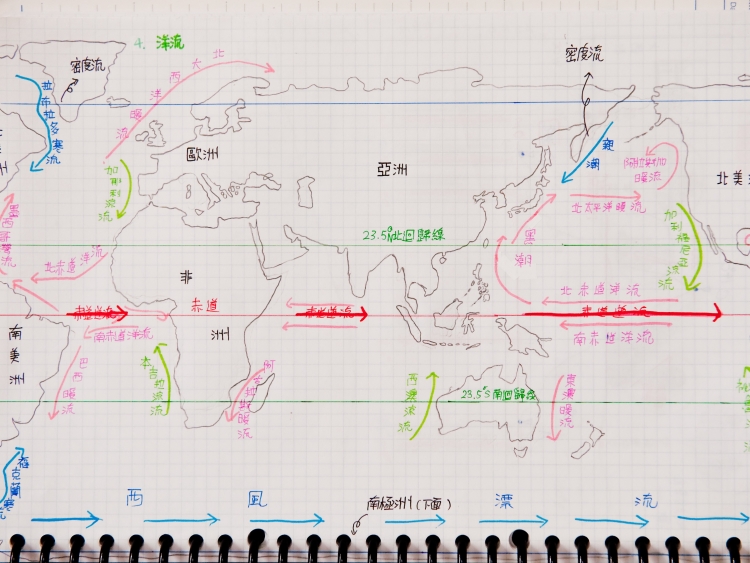 4. 洋流
密度流
密度流
北大西洋暖流
拉布拉多寒流
歐洲
亞洲
親潮
阿拉斯加暖流
北美
加那利涼流
墨西哥灣流
北赤道洋流
23.5°N北回歸線
黑潮
北太平洋暖流
加利福尼亞涼流
北赤道洋流
非洲
赤道
赤道逆流
赤道逆流
赤道逆流
南赤道洋流
南赤道洋流
南美洲
巴西暖流
本吉拉涼流
阿古拉斯暖流
西澳涼流
23.5°S南回歸線
東澳暖流
福克蘭寒流
西風漂流
南極洲(下面)